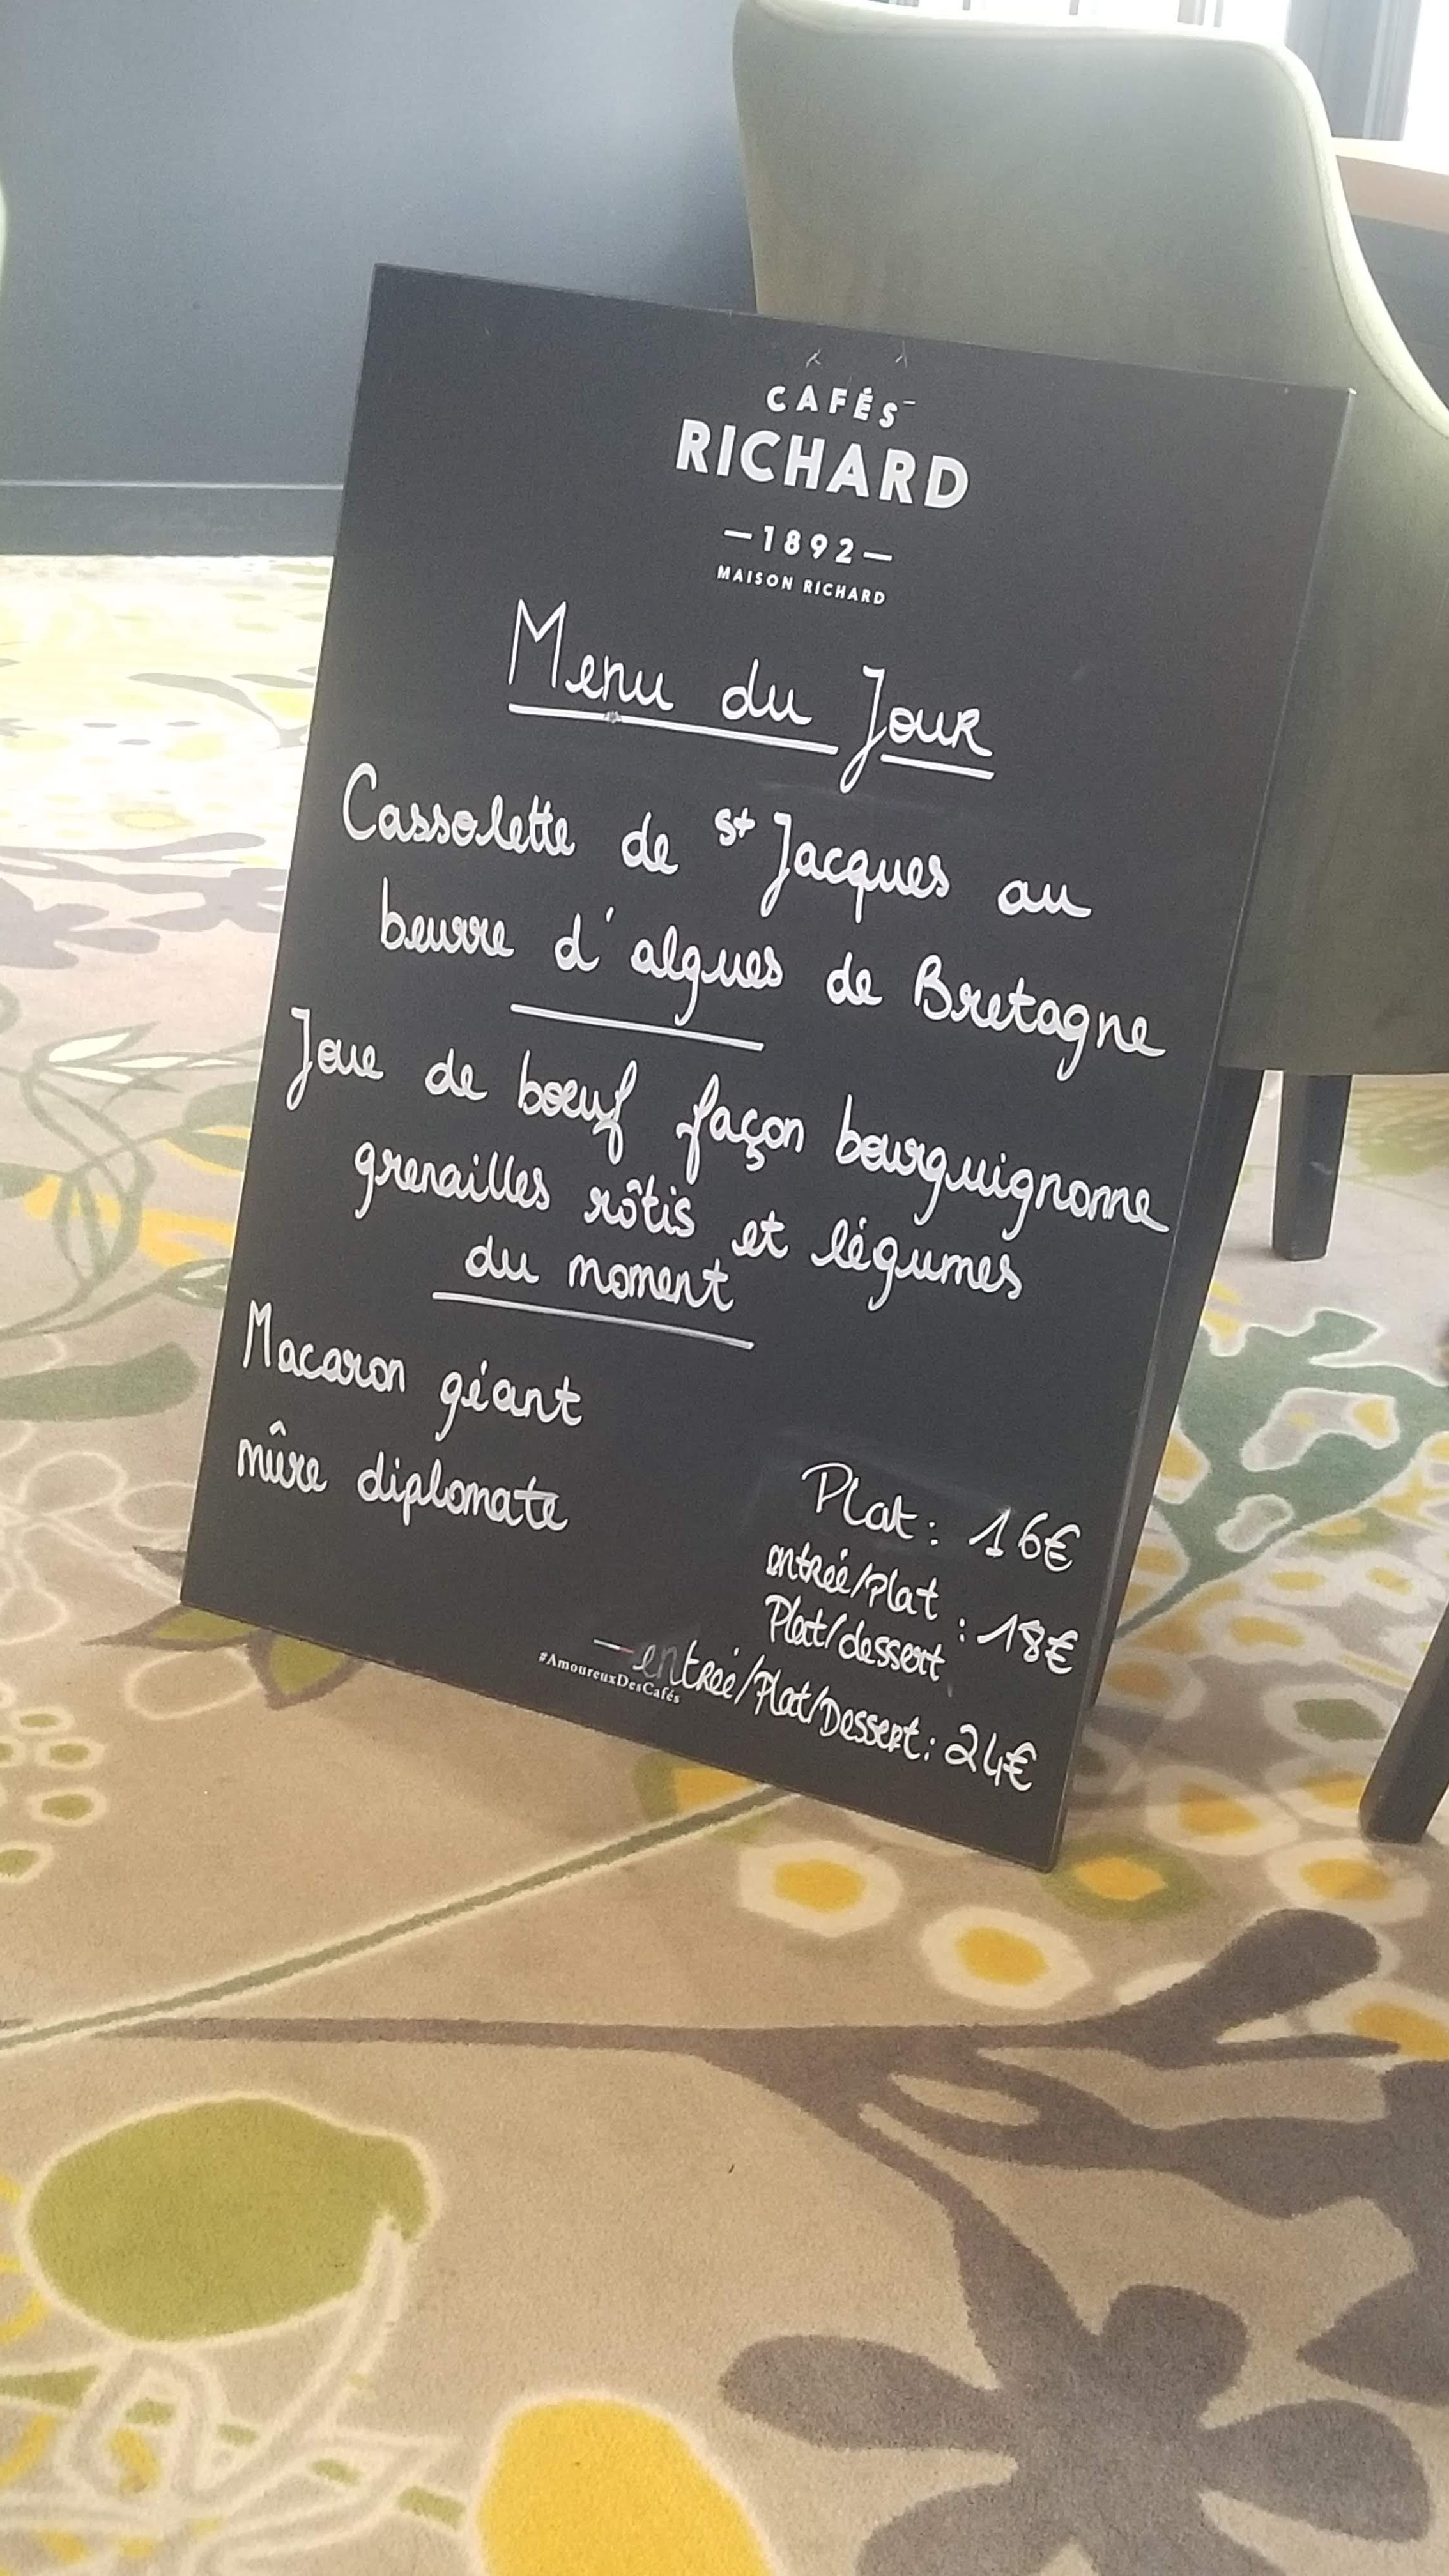 CAFÉS
RICHARD
—1892—
MAISON RICHARD
Menu du Jour
Cassolette de St Jacques au
beurre d'algues de Bretagne
Joue de bœuf façon bourguignonne
grenailles rôtis et légumes
du moment
Macaron géant
mûre diplomate
Plat : 16€
entrée/Plat
Plat/dessert : 18€
entrée/Plat/Dessert : 24€
#AmoureuxDesCafés